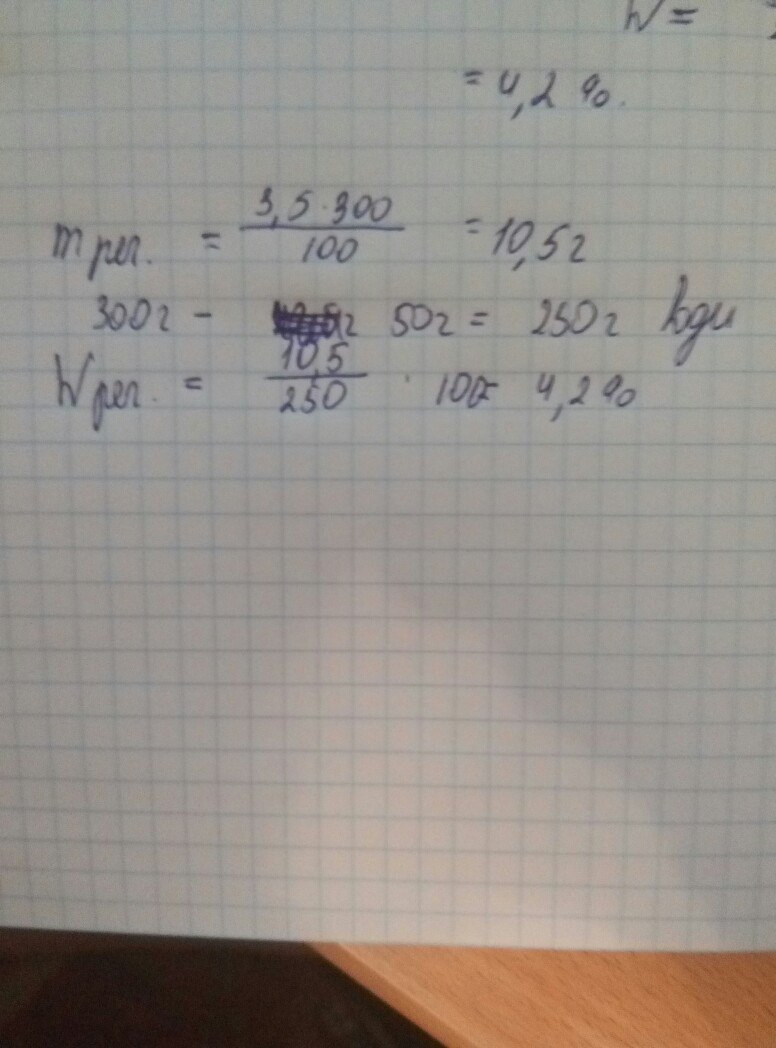 W =
= 4,2 %.
m реч. = 3,5·300 / 100 = 10,5 г
300г - 50г = 250г води
W реч. = 10,5 / 250 · 100 = 4,2 %